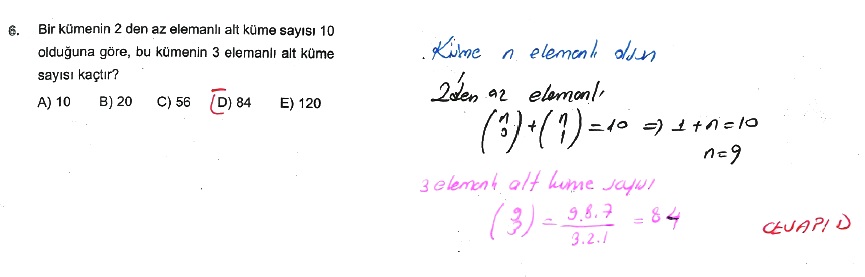 6. Bir kümenin 2 den az elemanlı alt küme sayısı 10
olduğuna göre, bu kümenin 3 elemanlı alt küme
sayısı kaçtır?
A) 10 B) 20 C) 56 D) 84 E) 120
Küme n elemanlı olsun
2'den az elemanlı
(n 0) + (n 1) = 10 => 1 + n = 10
n = 9
3 elemanlı alt küme sayısı
(9 3) = 9.8.7 / 3.2.1 = 84
CEVAP D